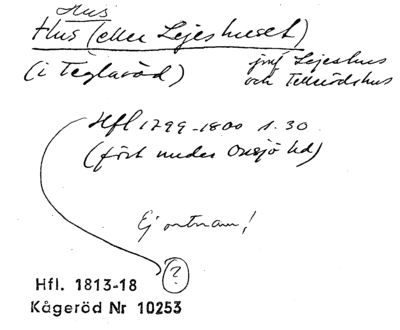 Hus
Hus (eller Lejeshuset)
(i Téglaröd)
jmf Lejeshus
och Tellrödshus
Hfl 1799-1800 s. 30
(fört under Onsjö hd)
Ej ortnamn!
?
Hfl. 1813-18
Kågeröd Nr 10253